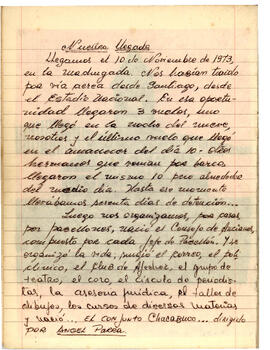 Nuestra llegada
Llegamos el 10 de Noviembre de 1973,
en la madrugada. Nos habían traído
por vía aérea desde Santiago, desde
el Estadio Nacional. En esa oportu-
nidad llegaron 3 vuelos, uno
que llegó en la noche del nueve,
nosotros y el último vuelo que llegó
en el amanecer del día 10.- Otros
hermanos que venían por barco
llegaron el mismo 10 pero alrededor
del medio día. Hasta ese momento
llevábamos sesenta días de detención...
Luego nos organizamos, por casas
por pabellones, nació el Consejo de Ancianos,
compuesto por cada Jefe de Pabellón. Y se
organizó la vida, surgió el correo, el poli
clínico, el club de Ajedrez, el grupo de
teatro, el coro, el círculo de periodis-
tas, la asesoría jurídica, el taller de
dibujos, los cursos de diversas materias
y nació... el conjunto Chacabuco... dirigido
por ANGEL PARRA